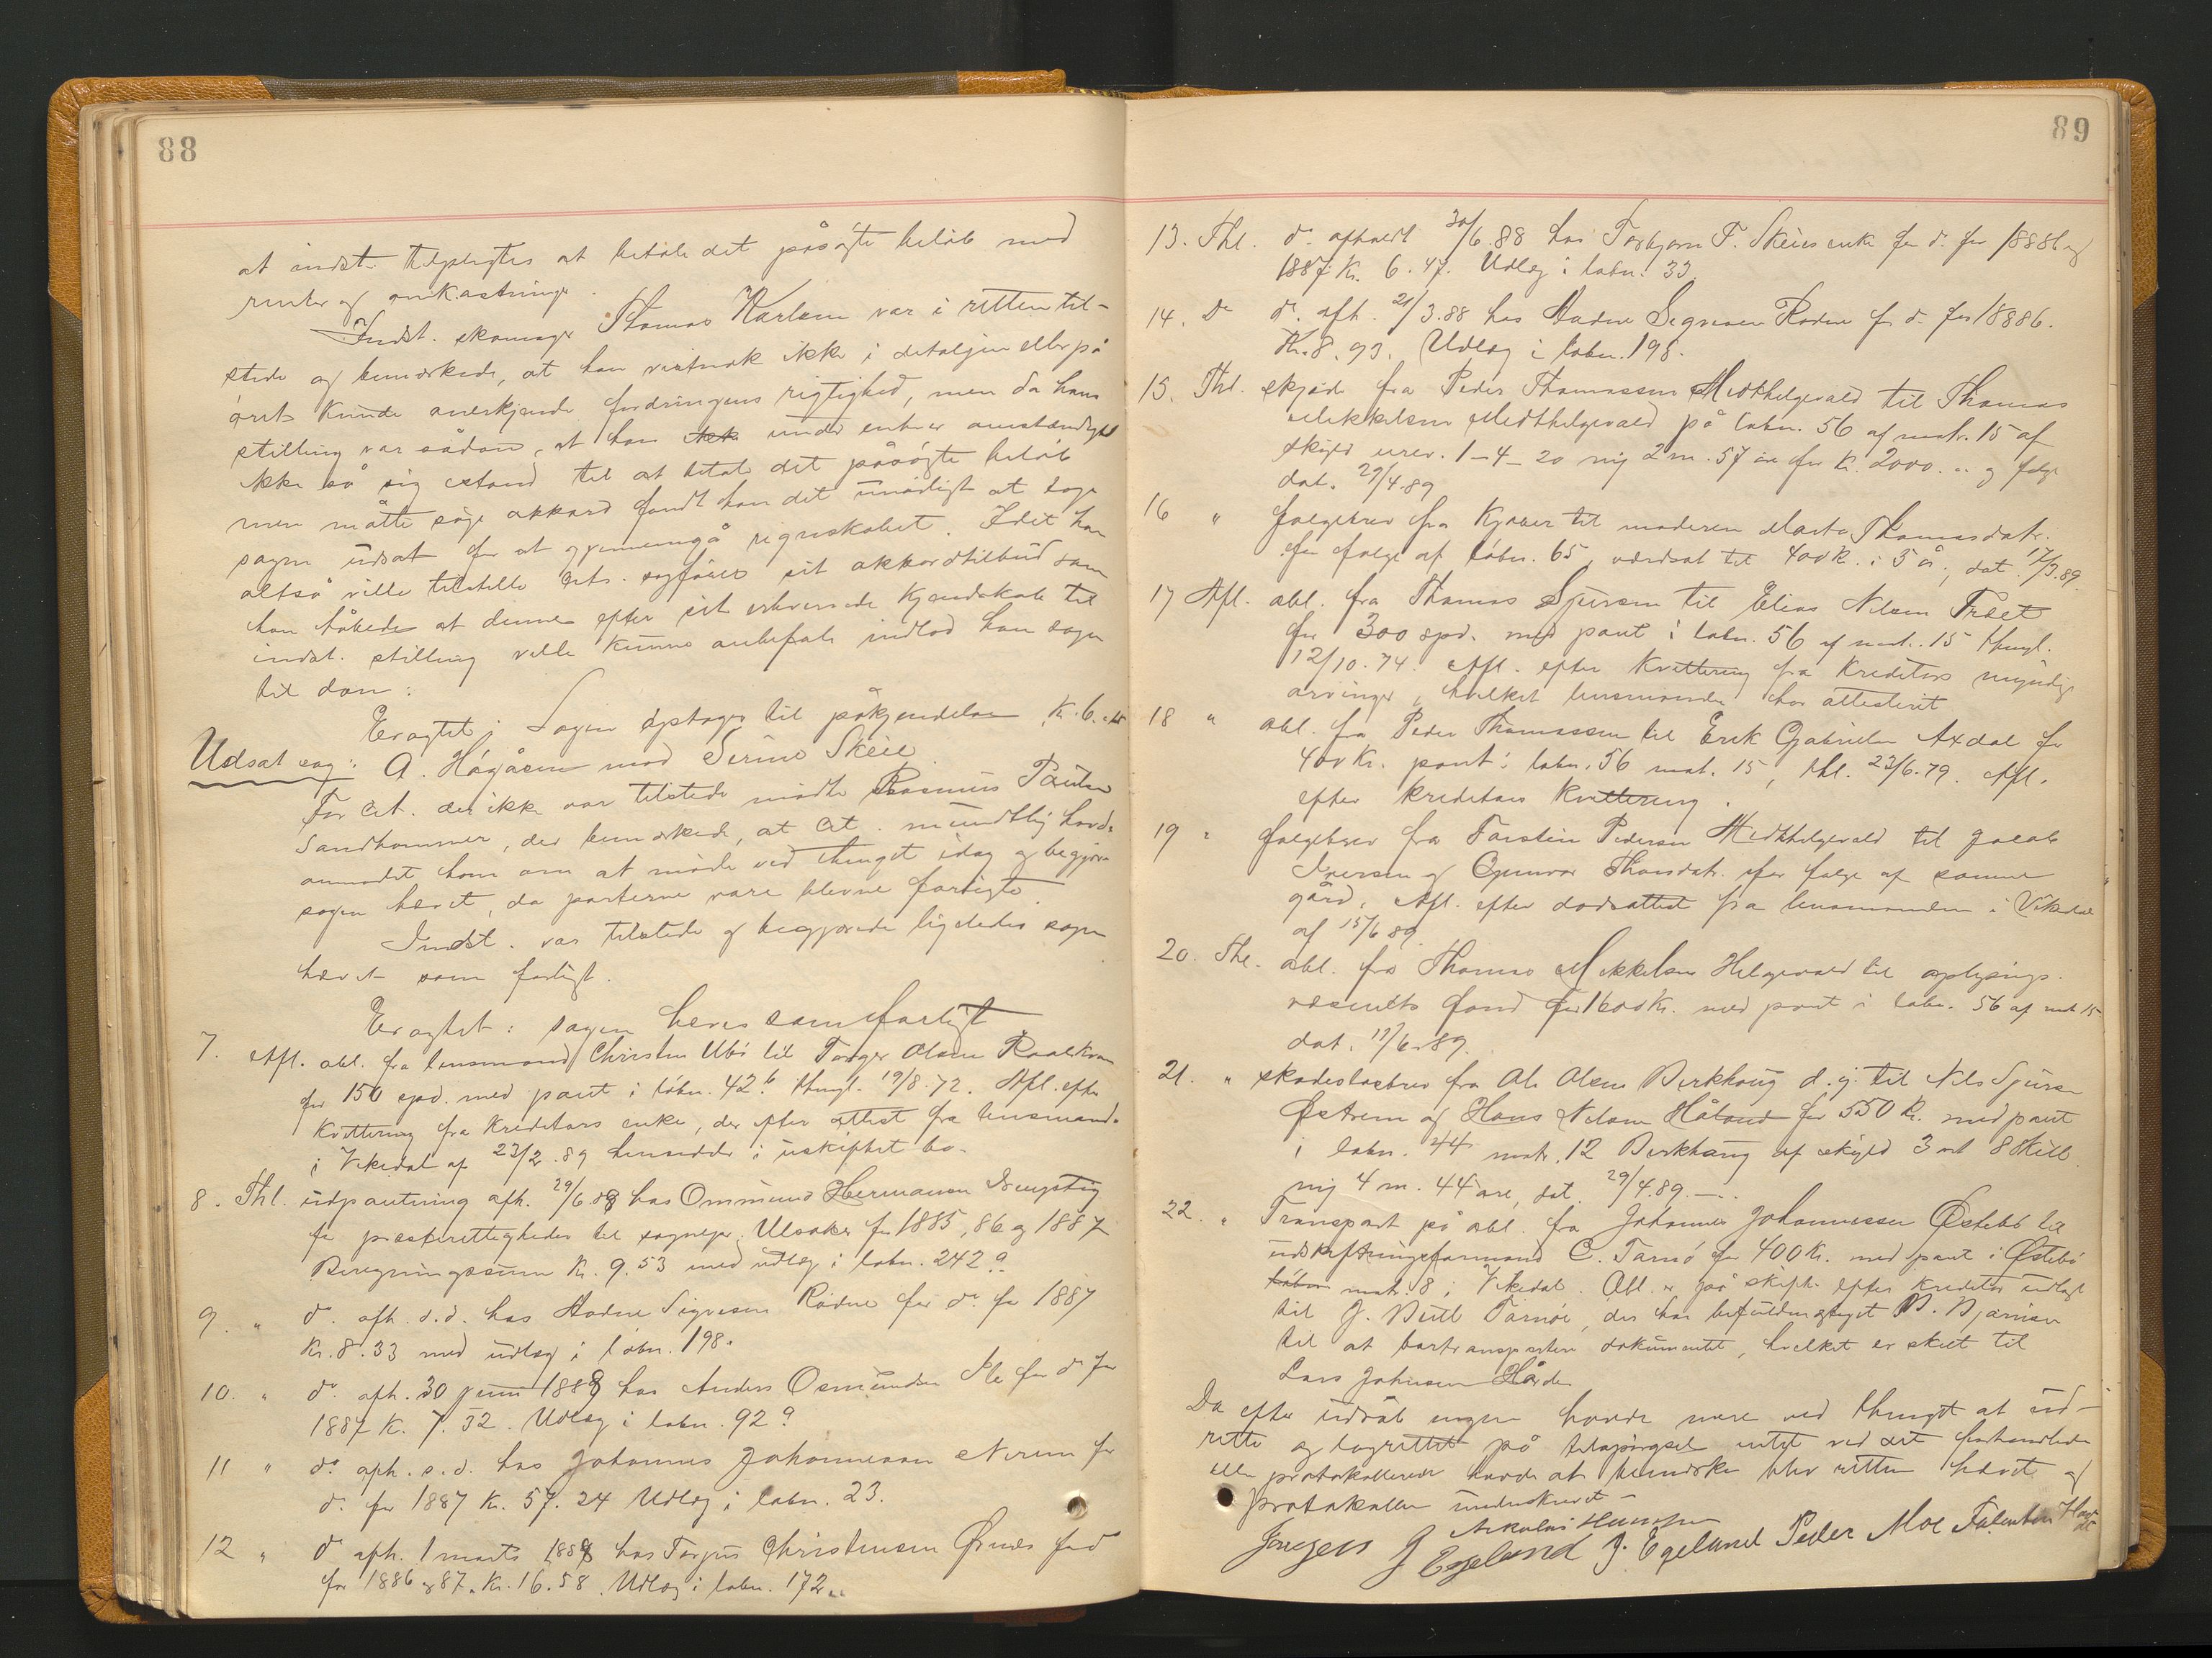 88
at indst. tilpligtes at betale det påsøgte beløb med
renter og omkostninger.
Indst. skomager Thomas Karlsen var i retten til-
stede og bemærkede, at han vistnok ikke i detaljen eller på
øret kunde anerkjende fordringens rigtighed, men da hans
stilling var sådan, at han ikke under enhver omstændighed
ikke så sig istand til at betale det påsøgte beløb
men måtte søge akkord fandt han det unødigt at tage
sagen udsat for at gjennemgå regnskabet. Idet han
altså ville tilstille cits. sagfører sit akkordtilbud som
han håbede at denne efter sit erhvervede kjendskab til
indst. stilling ville kunne anbefale indlod han sagen
til dom:
Eragtet: Sagen optages til påkjendelse K. 6.
Udsat sag: A. Hågåsen mod Serine Skeie.
For cit. der ikke var tilstede mødte Rasmus Paulsen
Sandhammer, der bemærkede, at cit. mundtlig havde
anmodet ham om at møde ved thinget idag og begjære
sagen hævet, da parterne vare blevne forligte.
Indst. var tilstede og begjærede ligeledes sagen
hævet som forligt.
Eragtet: sagen hæves som forligt
7. Afl. obl. fra lensmand Christen Ubø til Torger Olsen Raalkvam
for 150 spd. med pant i løbn. 42b thingl. 19/8.72. Afl. efter
kvittering fra kreditors enke, der efter attest fra lensmand
i Vikedal af 23/2.89 hensidder i uskiftet bo.
8. Thl. udpantning afh. 29/6.88 hos Ommund Hermansen
for præsterettigheder til sognepr. Ulsaker for 1885, 86 og 1887
Beregningssum Kr. 9.53 med udlæg i løbn. 242a
9. " do. afh. s.d. hos Aadne Sigvesen Rødne for do. for 1887
Kr. 8.33 med udlæg i løbn. 198.
10. " do. afh. 30 juni 1888 hos Anders Osmundsen for do for
1887 K. 7.32. Udlæg i løbn. 92a
11 " do. afh. s.d. hos Johannes Johannesen Nerem for
do. for 1887 Kr. 57.24 Udlæg i løbn. 23.
12 " do afh. 1 marts 1888 hos Torjus Christensen Ørnes for d
for 1886 og 87. Kr. 16.58. Udlæg i løbn. 172.
89
13. Thl. do. afholdt 30/6.88 hos Torbjørn T. Skeies enke for d. for 1886 og
1887. Kr. 6.47. Udlæg i løbn. 33.
14. Do do. afh. 21/3.88 hos Aadne Segvesen Rødne for d. for 1886.
Kr. 8.93. Udlæg i løbn. 198.
15. Thl. skjøde fra Peder Thomassen Midthelgevald til Thomas
Mikkelsen Midthelgevald på løbn. 56 af matr. 15 af
skyld urev. 1-4-20 ny 2 m. 57 øre for K. 2000 .. og følge
dat. 29/4.89
16 " følgebrev fra kjøber til moderen Marta Thomasdatr.
for følge af løbn. 65, værdsat til 400 K. i 5 år, dat. 17/3.89.
17 Afl. obl. fra Thomas Sjursen til Elias Nelsen Træet
for 300 spd. med pant i løbn. 56 af matr. 15 thingl.
12/10.74. Afl. efter kvittering fra kreditors myndige
arvinger, hvilket lensmanden har attesteret
18 " obl. fra Peder Thomassen til Erik Gabrielsen Axdal for
400 Kr. pant i løbn. 56 mat. 15, thl. 23/6.79. Afl.
efter kreditors kvittering.
19 " følgebrev fra Torstein Pedersen Midthelgevald til Jacob
Iversen og Gunvor Thorsdatr. for følge af samme
gård. Afl. efter dødsattest fra lensmanden i Vikedal
af 15/6 89.
20. Thl. obl. fra Thomas Mikkelsen Helgevald til oplysnings-
væsenets fond for 1600 Kr. med pant i løbn. 56 af mat 15
dat. 17/6.89.
21. " skadesløsbrev fra Ole Olsen Birkhaug d.y. til Nils Sjursen
Østrem og Hans Nelsen Håland for 550 K. med pant
i løbn. 44 matr. 12 Birkhaug af skyld 3 ort 8 skill.
ny 4 m. 44 øre, dat. 29/4.89.
22. " Transport på obl. fra Johannes Johannessen Østebø til
udskiftningsformand C. Tarnø for 400 K. med pant i Østebø
løbnr matr. 8 i Vikedal. Obl. er på skifte efter kreditor udlagt
til J. Tarnøe, der har befuldmægtiget B. Bjørnsen
til at borttransportere dokumentet, hvilket er skeet til
Lars Johnsen Hårde
Da efter udråb ingen havde mere ved thinget at ud-
rette og lagrettet på tilspørgsel intet ved det forhandlede
eller protokollerede havde at bemærke blev retten hævet og
protokollen underskrevet
Nikolai Hansen
Jørgen J Egeland J. Egeland Peder Moe